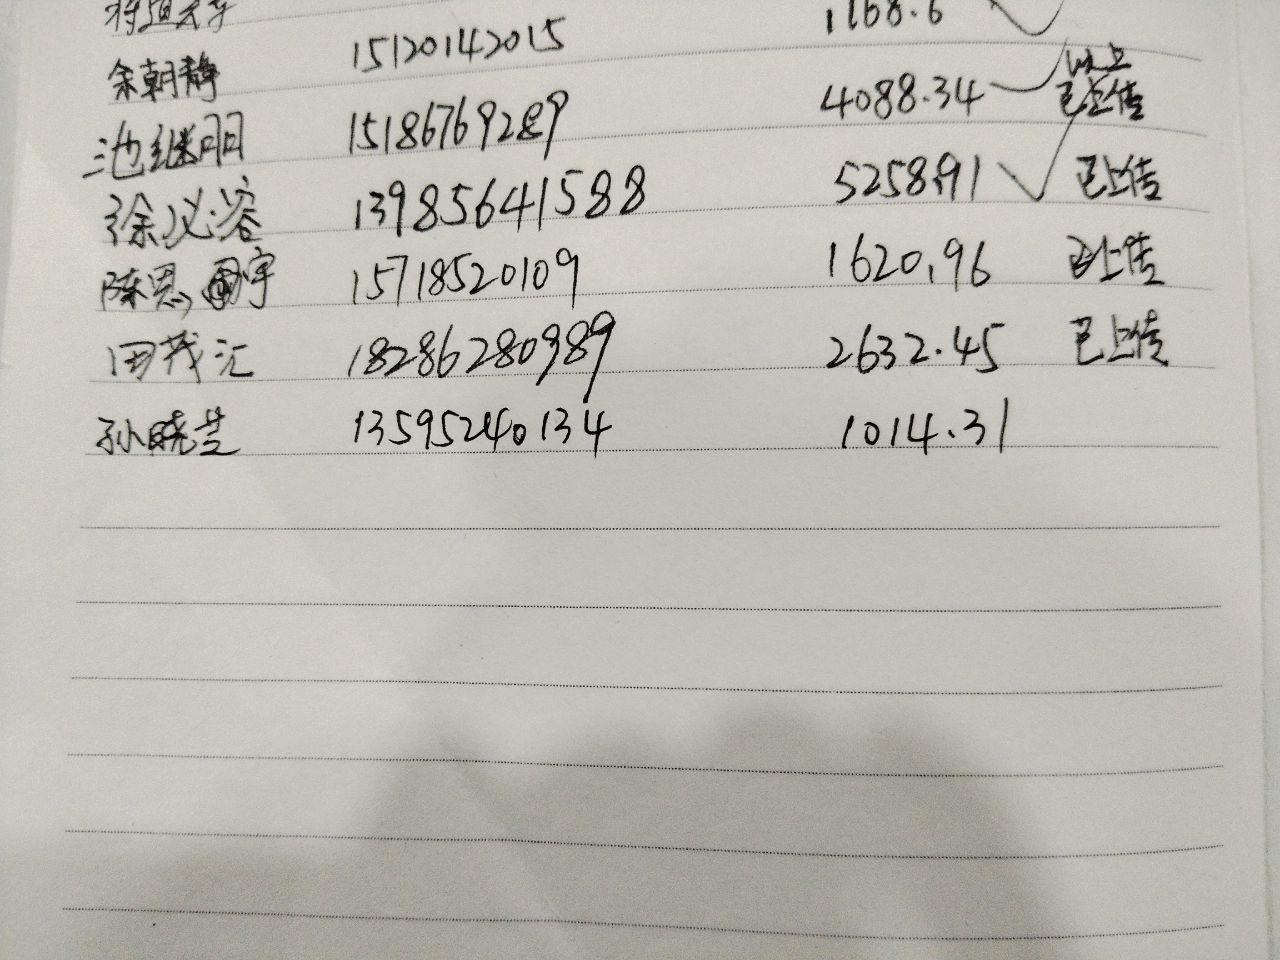 1168.6
余朝静 15120142015
4088.34 以上已上传
池继丽 15186769289
徐必容 13985641588 5258.91 已上传
陈恩宇 15718520109 1620.96 已上传
田茂汇 18286280989 2632.45 已上传
孙晓芸 13595240134 1014.31